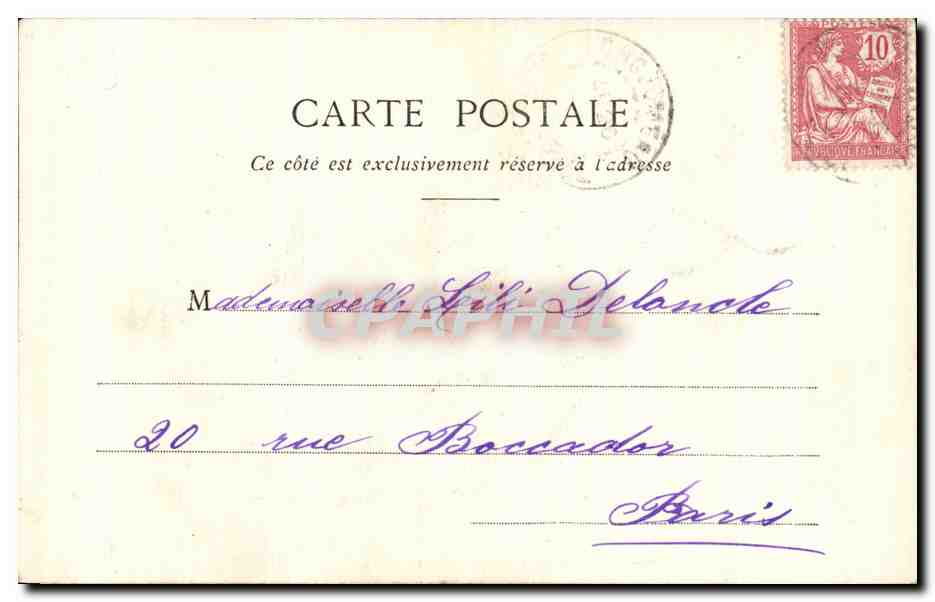 POSTES
10
RÉPUBLIQUE FRANÇAISE
CARTE POSTALE
Ce côté est exclusivement réservé à l'adresse
Mademoiselle Lili Delancle
CPAPHIL
20 rue Boccador
Paris